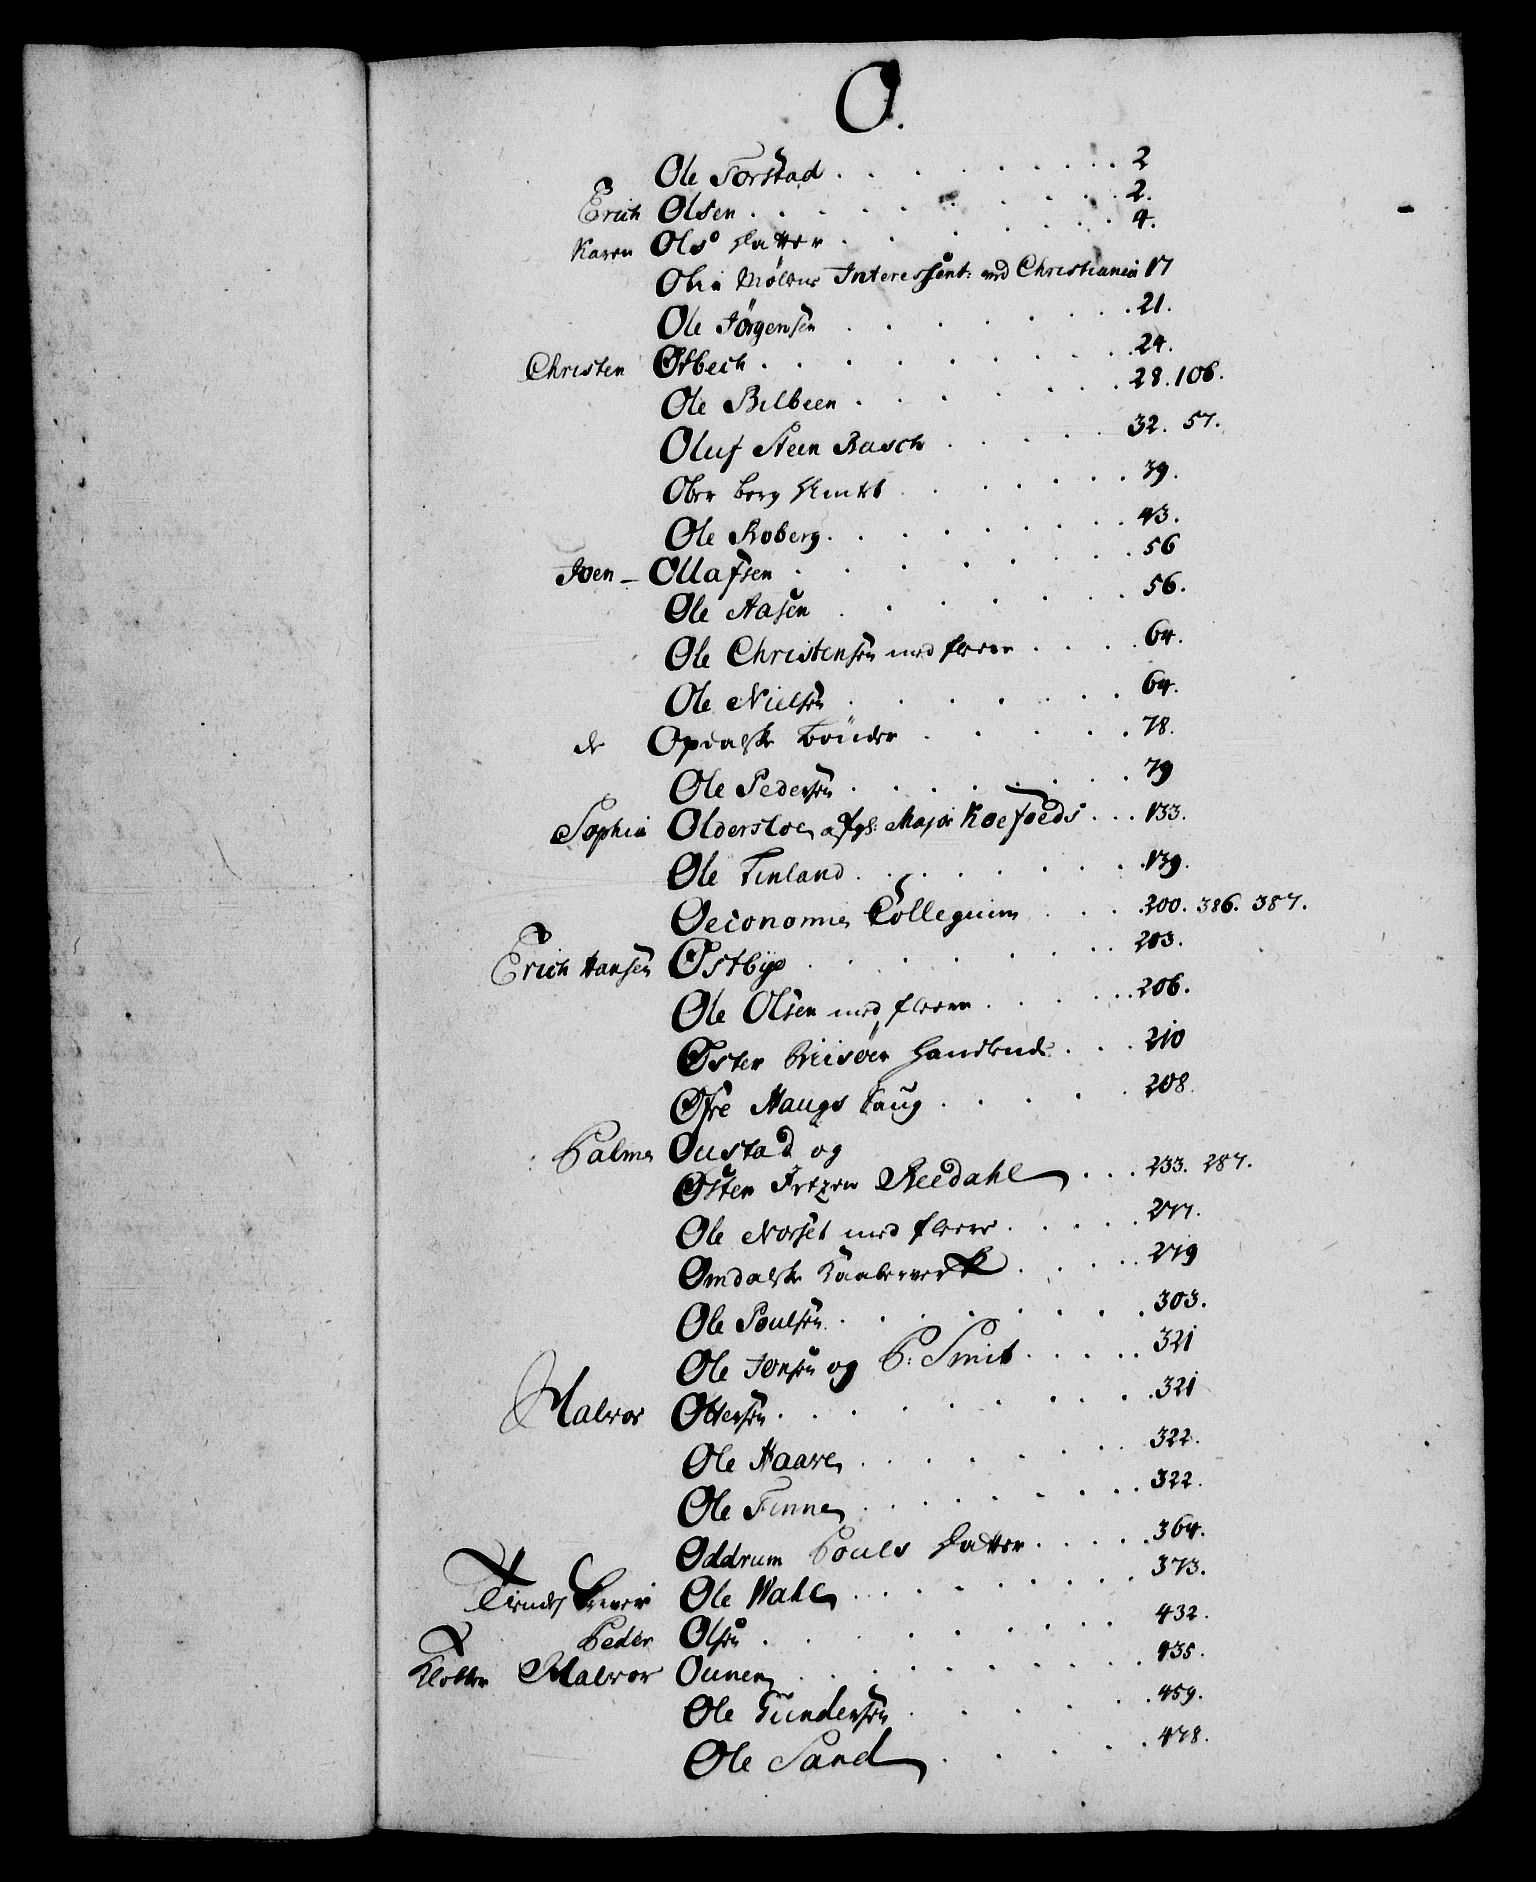 O.
Ole Torstad . . . . . . . . 2
Erich Olsen . . . . . . . . . 2.
Karen Ols Datter . . . . . . . 4.
Olie Møllens Interessent: ved Christiania 17
Ole Jörgensen . . . . . . . 21.
Christen Østbech . . . . . . . . 24.
Ole Bilbeen . . . . . . 28. 106.
Oluf Steen Rasch . . . . . 32. 57.
Ober berg Amtet . . . . . . 39.
Ole Roberg . . . . . . . . 43.
Iven - Ollafsen . . . . . . . . 56
Ole Aasen . . . . . . . 56.
Ole Christensen med fleere . . . . 64.
Ole Nielsen . . . . . . . 64.
de Opdalske Bönder . . . . . 78.
Ole Pedersen . . . . . . . 79
Sophia Oldersloe, afg: Major Koefoeds . . . 133.
Ole Finland . . . . . . . . 139.
Oeconomie Collegium . . . . 200. 386. 387.
Erich Hansen Østbye . . . . . . . . 203.
Ole Olsen med fleere . . . . . . 206.
Øster Riisöer Handlende . . . 210
Øfre Haugs Laug . . . . . 208
Palme Oustad og
Østen Reedahl . . . 233. 287.
Ole Norset med fleere . . . . . 277.
Omdalske Kaaberverk . . . . . 279
Ole Poulsen . . . . . . . . 303.
Ole Jonsen og P: Smit . . . . . 321
Halvor Ottersen . . . . . . . . . 321
Ole Haave . . . . . . . 322.
Ole Finne . . . . . . . . 322.
Oddrum Pouls Datter . . . . . 364.
Ole Wahl . . . . . . . . . 373.
Peder Olsen . . . . . . . . . 432.
Klokker Halvor Ounen . . . . . . . . . 435.
Ole Gundersen . . . . . . 459.
Ole Sand . . . . . 478.